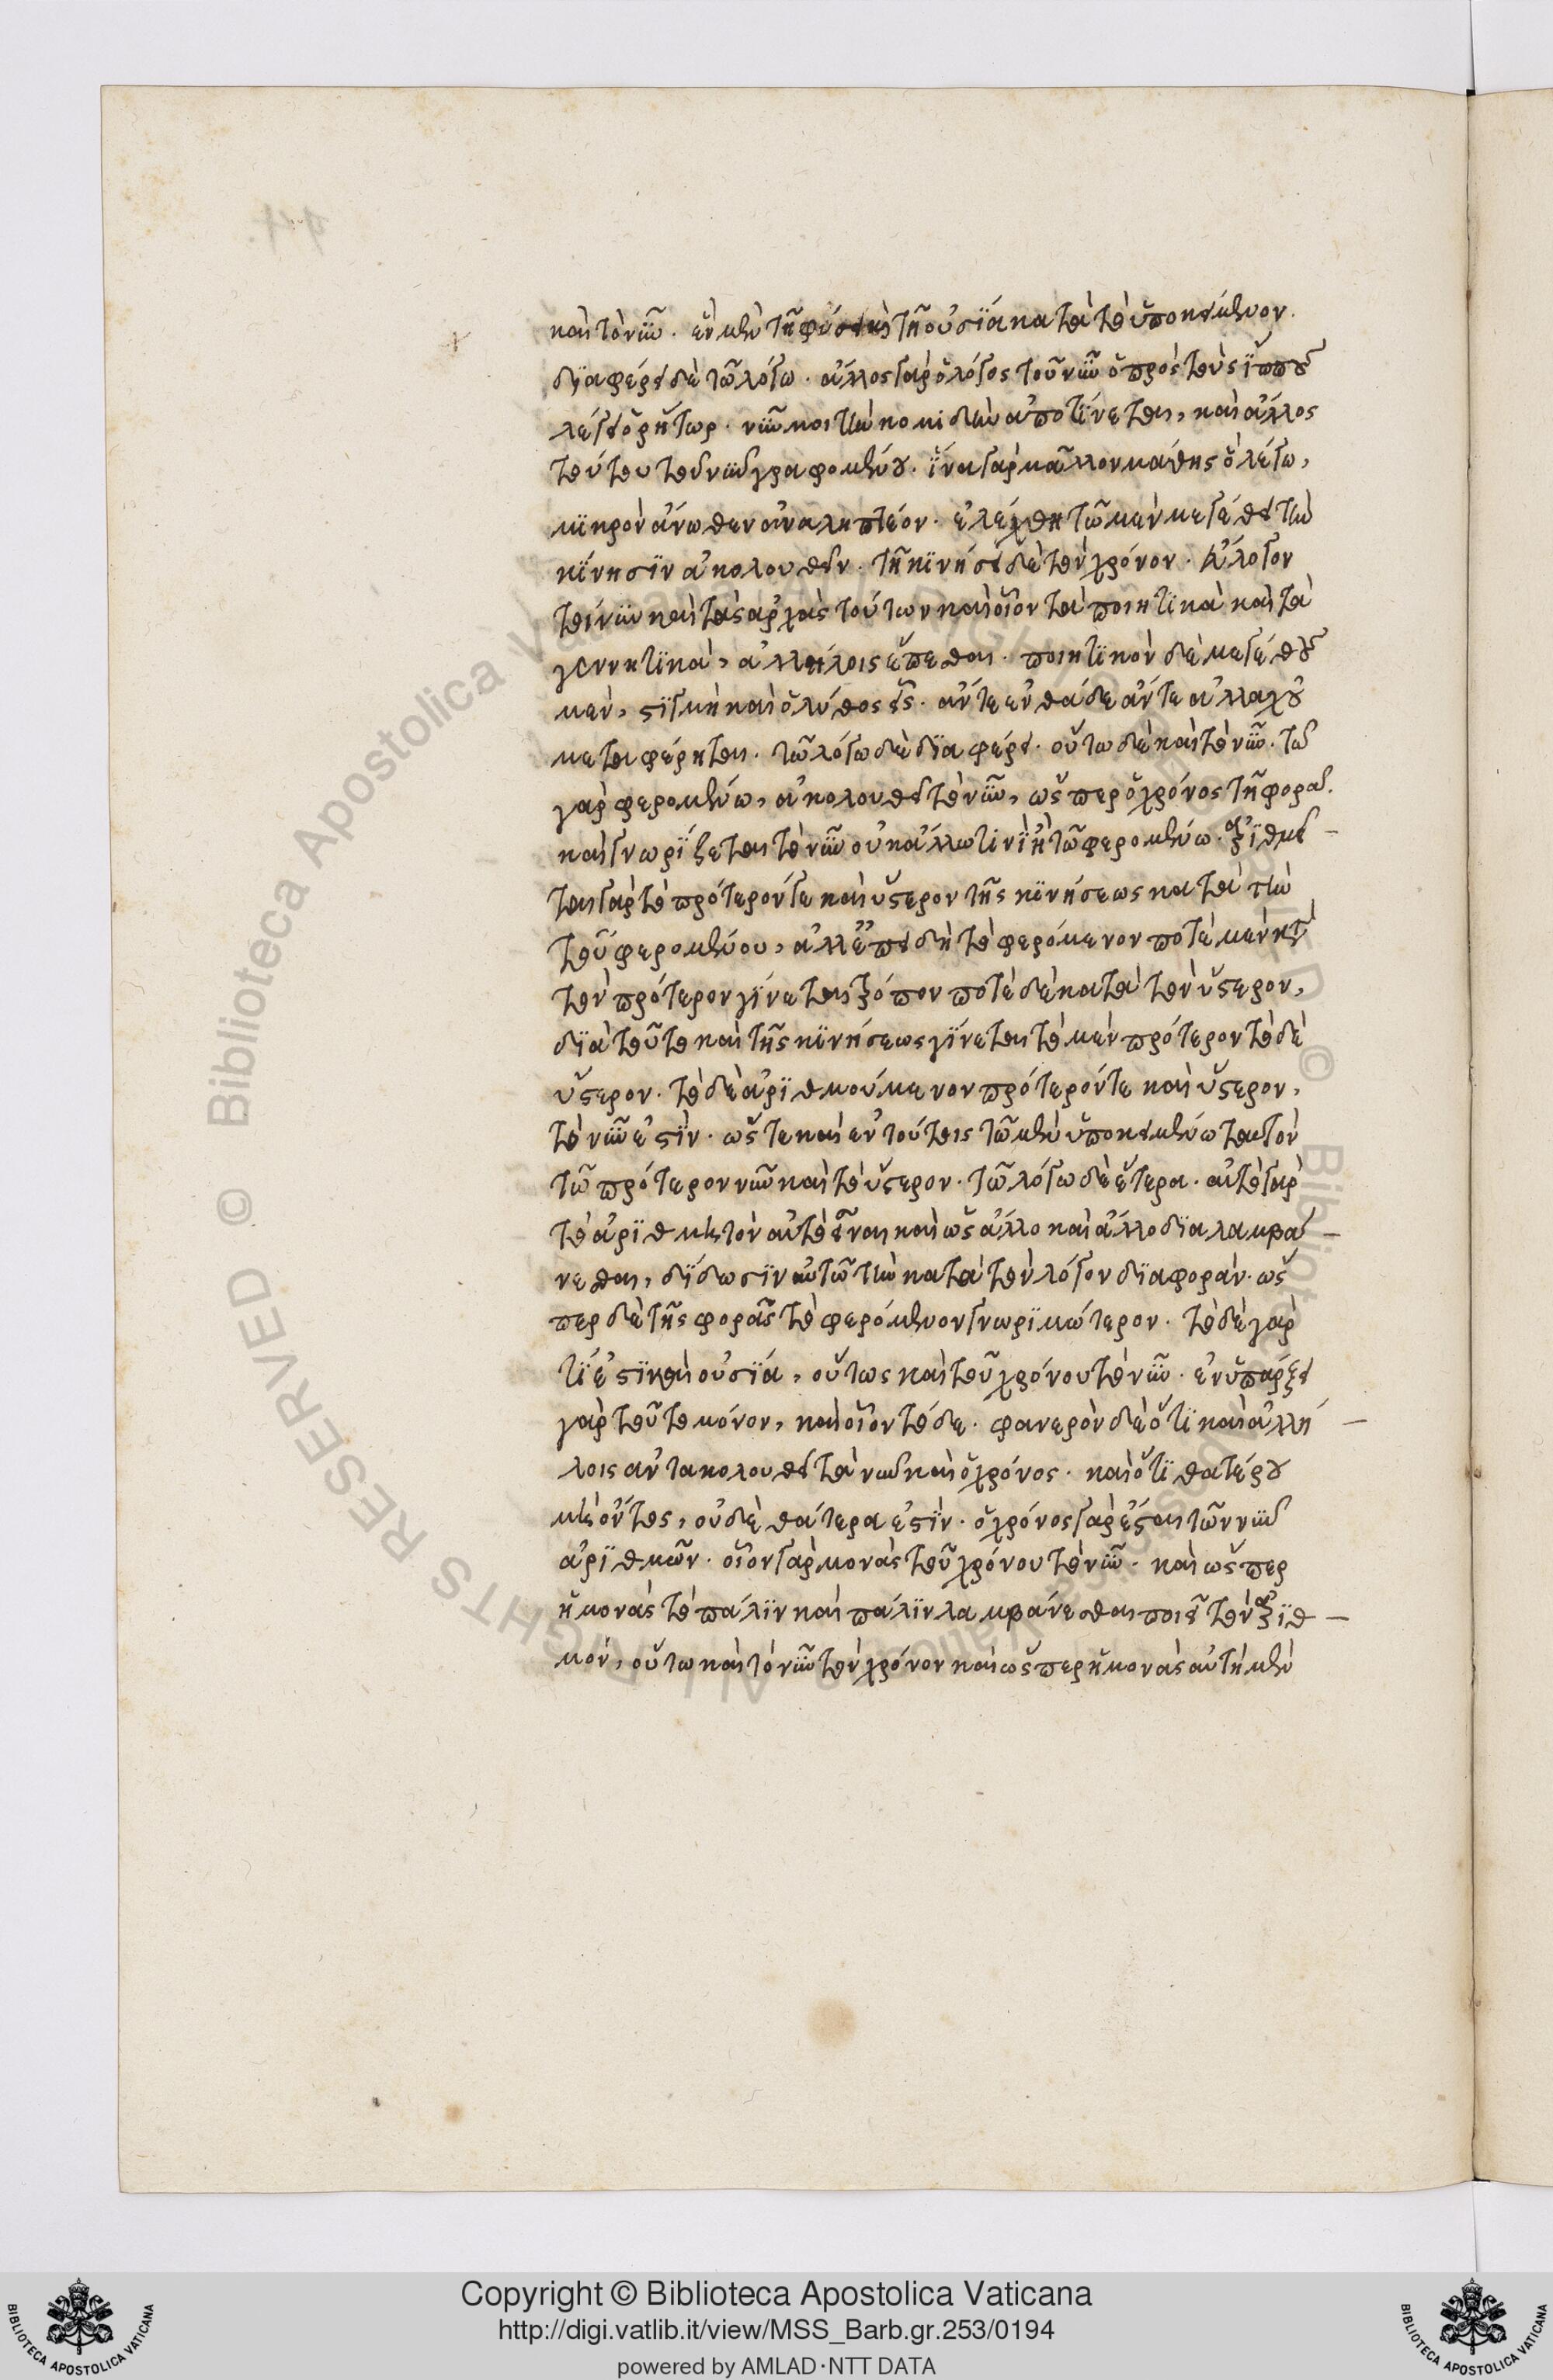 καὶ τὸ νῦν. ἓν μὲν τῇ φύσει καὶ τῇ οὐσίᾳ κατὰ τὸ ὑποκείμενον.
διαφέρει δὲ τῷ λόγῳ. ἄλλος γὰρ ὁ λόγος τοῦ νῦν ὃ πρὸς τοὺς ἵππους
λέγει ὁ ῥήτωρ. νῦν μοι τὴν κομιδὴν ἀποτίνεται, καὶ ἄλλος
τούτου τοῦ νῦν γραφομένου. ἵνα γὰρ μᾶλλον μάθῃς ὃ λέγω,
μικρὸν ἄνωθεν ἀναληπτέον. ἐλέχθη τῷ μὲν μεγέθει τὴν
κίνησιν ἀκολουθεῖν. τῇ κινήσει δὲ τὸν χρόνον. εὔλογον
τοίνυν καὶ τὰς ἀρχὰς τούτων καὶ οἷον τὰ ποιητικὰ καὶ τὰ
γεννητικὰ, ἀλλήλοις ἕπεσθαι. ποιητικὸν δὲ μεγέθους
μὲν, στιγμὴ καὶ ὁ λίθος εἷς. ἄν τε ἐνθάδε ἄν τε ἀλλαχοῦ
μεταφέρηται. τῷ λόγῳ δὲ διαφέρει. οὕτω δὲ καὶ τὸ νῦν. τῷ
γὰρ φερομένῳ, ἀκολουθεῖ τὸ νῦν, ὥσπερ ὁ χρόνος τῇ φορᾷ.
καὶ γνωρίζεται τὸ νῦν οὐκ ἄλλῳ τινὶ ἢ τῷ φερομένῳ. ἀριθμεῖ–
ται γὰρ τὸ πρότερόν τε καὶ ὕστερον τῆς κινήσεως κατὰ τὴν
τοῦ φερομένου, ἀλλ' ἐπειδὴ τὸ φερόμενον ποτὲ μὲν κατὰ
τὸν πρότερον γίνεται τρόπον ποτὲ δὲ κατὰ τὸν ὕστερον,
διὰ τοῦτο καὶ τῆς κινήσεως γίνεται τὸ μὲν πρότερον τὸ δὲ
ὕστερον. τὸ δὲ ἀριθμούμενον πρότερόν τε καὶ ὕστερον,
τὸ νῦν ἐστὶν. ὥστε καὶ ἐν τούτοις τῷ μὲν ὑποκειμένῳ ταυτὸν
τῷ πρότερον νῦν καὶ τὸ ὕστερον. τῷ λόγῳ δὲ ἕτερα. αὐτὸ γὰρ
τὸ ἀριθμητὸν αὐτὸ εἶναι καὶ ὡς ἄλλο καὶ ἄλλο διαλαμβά–
νεσθαι, δίδωσιν αὐτῷ τὴν κατὰ τὸν λόγον διαφοράν. ὥσ
περ δὲ τῆς φορᾶς τὸ φερόμενον γνωριμώτερον. τόδε γάρ
τί ἐστι καὶ οὐσία, οὕτως καὶ τοῦ χρόνου τὸ νῦν. ἐνυπάρξει
γὰρ τοῦτο μόνον, καὶ οἷον τόδε. φανερὸν δὲ ὅτι καὶ ἀλλή–
λοις ἀντακολουθεῖ τὰ νῦν καὶ ὁ χρόνος. καὶ ὅτι θατέρου
μὴ ὄντος, οὐδὲ θάτερα ἐστὶν. ὁ χρόνος γὰρ ἔσται τῶν νῦν
ἀριθμῶν. οἷον γὰρ μονὰς τοῦ χρόνου τὸ νῦν. καὶ ὥσπερ
ἡ μονὰς τὸ πάλιν καὶ πάλιν λαμβάνεσθαι ποιεῖ τὸν ἀριθ–
μόν, οὕτω καὶ τὸ νῦν τὸν χρόνον καὶ ὥσπερ ἡ μονὰς αὐτὴ μὲν
Copyright © Biblioteca Apostolica Vaticana
http://digi.vatlib.it/view/MSS_Barb.gr.253/0194
powered by AMLAD·NTT DATA